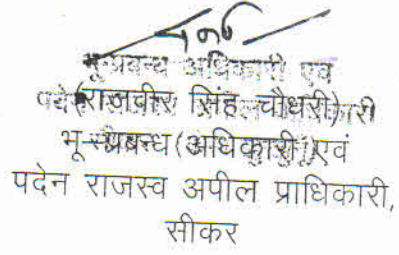 भू-प्रबन्ध अधिकारी एवं
(राजवीर सिंह चौधरी)
भू-प्रबन्ध (अधिकारी) एवं
पदेन राजस्व अपील प्राधिकारी,
सीकर